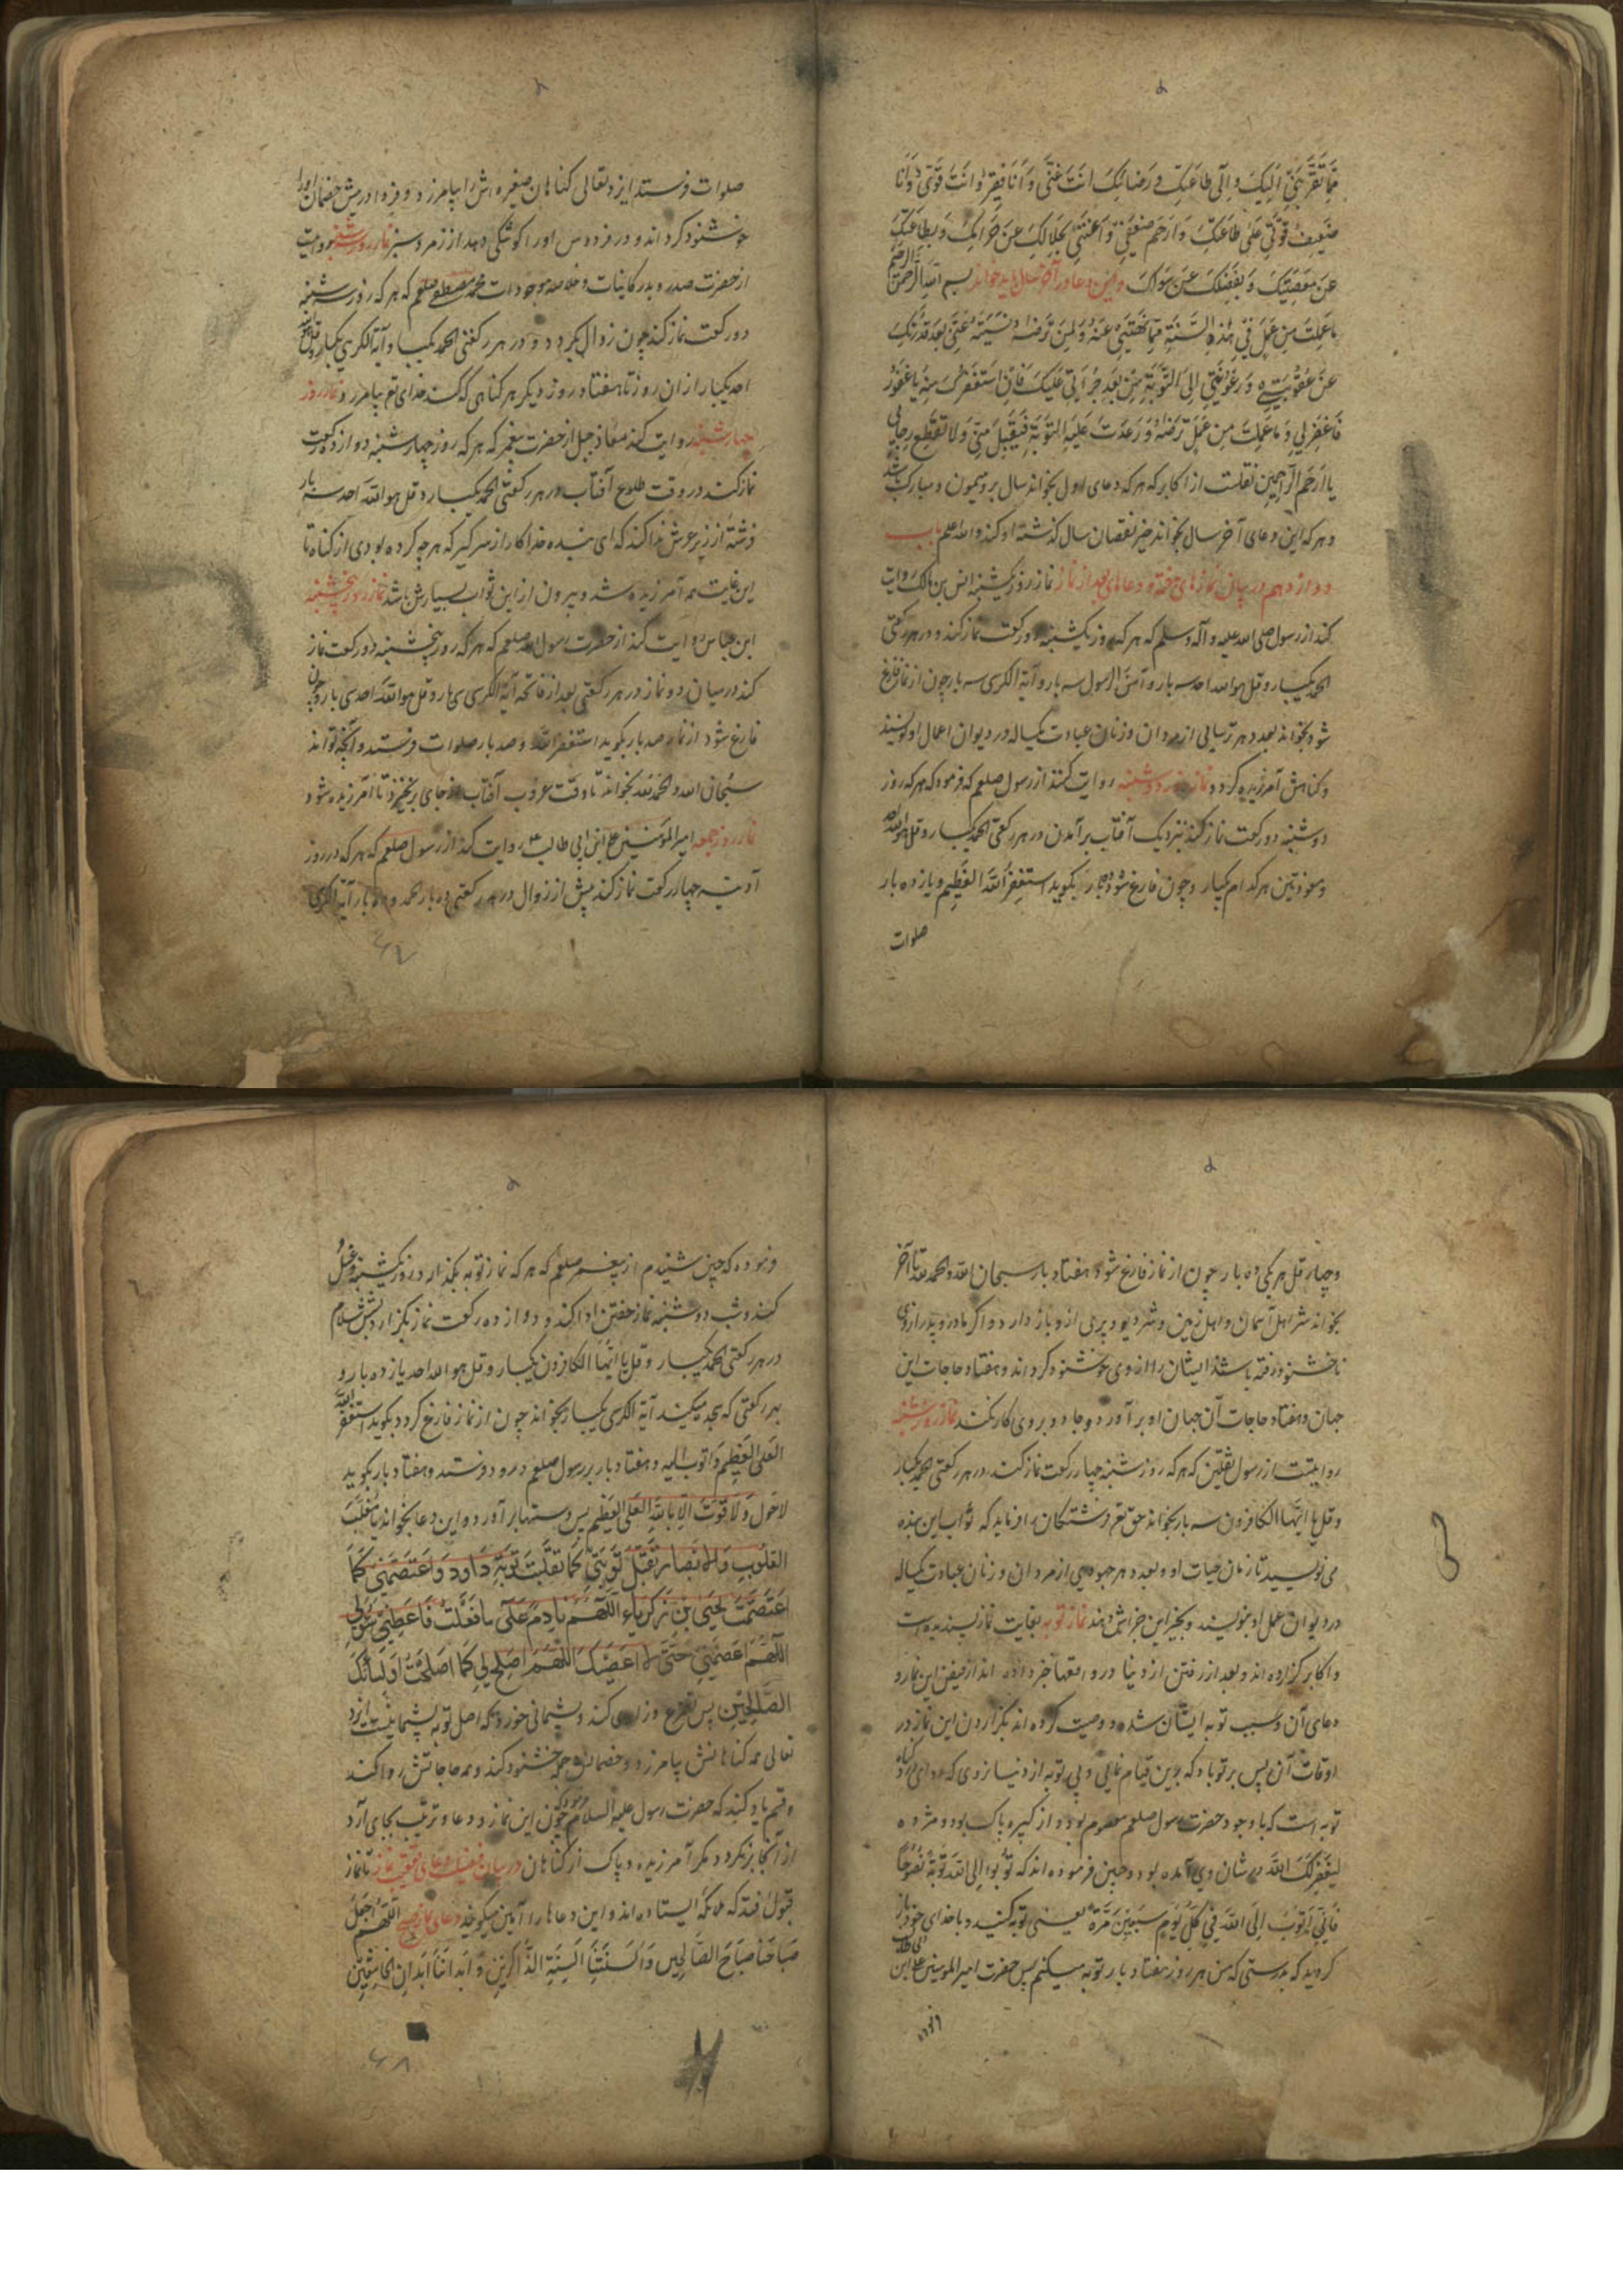 مِمَّا تُقَرِّبُنِي اِلَيكَ و اِلَی طاعَتِکَ و رَضائِکَ اَنتَ غَنِیٌّ وَ اَنَا فَقِیر وَ اَنتَ قَوِیٌّ وَ اَنَا
ضَعِیف قَوِّنِی عَلَی طاعَتِکَ وَ ارحَم ضَعفِی وَ اَغنِنِی بِحَلالِکَ عَن حَرامِکَ وَ بِطاعَتِکَ
عَن مَعصِیَتِکَ وَ بِفَضلِکَ عَمَّن سِواکَ و این دعا در آخر سال باید خواند بسم الله الرحمن الرحیم
ما عَمِلتُ مِن عَمَلٍ فِی هذِهِ السَّنَةِ مِمّا نَهَیتَنِی عَنهُ وَ لَم تَرضَهُ وَ نَسِیتُهُ عَنِّی بَعدَ قُدرَتِکَ
عَن عُقُوبَتِی وَ دَعَوتَنِی اِلَی التَّوبَةِ مِن بَعدِ جُراَتِی عَلَیکَ فَاِنّی استَغفَرتُکَ مِنهُ یا غَفُور
فَاغفِر لِی وَ ما عَمِلتُ مِن عَمَلٍ تَرضَهُ وَ وَعَدتَ عَلَیهِ التَّوبَة فَتَقَبَّل مِنِّی وَ لا تَقطَع رجایی
یا ارحم الراحمین نقلست از اکابر که هر که دعای اول بخواند سال برو میمون و مبارک باشد
و هر که این دعای آخر سال بخواند جبر نقصان سال گذشته او کند والله اعلم باب
دوازدهم در بیان نمازهای هفته و دعاهای بعد از نماز نماز روز یکشنبه انس بن مالک روایت
کند از رسول صلی الله علیه و آله و سلم که هر که روز یکشنبه دو رکعت نماز کند و در هر رکعتی
الحمد یکبار و قل هو الله احد سه بار و آمن الرسول سه بار و آیة الکرسی سه بار چون از نماز فارغ
شود بخواند بعدد هر ترسایی از مردان و زنان عبادت یکساله در دیوان اعمال او نویسند
و گناهش آمرزیده گردد نماز روز دوشنبه روایت کنند از رسول صلعم که فرمود که هر که روز
دوشنبه دو رکعت نماز کند نزدیک آفتاب برآمدن در هر رکعتی الحمد یکبار و قل هو الله
و معوذتین هر کدام یکبار و چون فارغ شود ده بار بگوید استغفر الله العظیم و یازده بار
صلوات
صلوات فرستد ایزد تعالی گناهان صغیره اش را بیامرزد و فردا در پیش خصمان او را
خوشنود گرداند و در فردوس او را کوشکی دهد از زمرد سبز نماز روز سه شنبه روایت
از حضرت صدر و بدر کاینات و خلاصه موجودات محمد مصطفی صلعم که هر که روز سه شنبه
دو رکعت نماز کند چون زوال بگردد و در هر رکعتی الحمد یکبار و آیة الکرسی یکبار و قل هو الله
احد یکبار از ان روز تا هفتاد روز دیگر هر گناهی که کند خدای تع بیامرزد و نماز روز
چهارشنبه روایت کند معاذ جبل از حضرت پیغمبر که هر که روز چهارشنبه دوازده رکعت
نماز کند در وقت طلوع آفتاب در هر رکعتی الحمد یکبار و قل هو الله احد سه بار
فرشته از زیر عرش ندا کند که ای بنده خدا کار از سر گیر که هر چه کرده بودی از گناه تا
این غایت همه آمرزیده شد و بیرون ازین ثواب بسیارش باشد نماز روز پنجشنبه
ابن عباس روایت کند از حضرت رسول الله صلعم که هر که روز پنجشنبه دو رکعت نماز
کند در میان دو نماز در هر رکعتی بعد از فاتحه آیة الکرسی سی بار و قل هو الله احد سی بار و چون
فارغ شود از نماز صد بار بگوید استغفر الله و صد بار صلوات فرستد و آنچه تواند
سبحان الله و الحمد لله بخواند تا وقت غروب آفتاب از جای برنخیزد تا آمرزیده شود
نماز روز جمعه امیر المؤمنین علی ابن ابی طالب روایت کند از رسول صلعم که هر که در روز
آدینه چهار رکعت نماز کند پیش از زوال در هر رکعتی ده بار الحمد و ده بار آیة الکرسی
و چهار قل هر یکی ده بار چون از نماز فارغ شود هفتاد بار سبحان الله و الحمد لله تا آخر
بخواند شر اهل آسمان و اهل زمین و شر دیو و پری ازو باز دارد و اگر مادر و پدر از وی
ناخشنود رفته باشند ایشان را از وی خوشنود گرداند و هفتاد حاجات این
جهان و هفتاد حاجات آن جهان او برآورد و جادو بر وی کار نکند نماز روز شنبه
روایتست از رسول ثقلین که هر که روز شنبه چهار رکعت نماز کند در هر رکعتی الحمد یکبار
و قل یا ایها الکافرون سه بار بخواند حق تع فرشتگان را فرماید که ثواب این بنده
می نویسید تا زمان حیات او و بعدد هر جهودی از مردان و زنان عبادت یکساله
در دیوان عمل او نویسند و بخیر این جزاش دهند نماز توبه بغایت نماز پسندیده است
و اکابر گزارده اند و بعد از رفتن از دنیا در واقعها خبر داده اند از فیض این نماز و
دعای آن و سبب توبه ایشان شده و وصیت کرده اند بگزاردن این نماز در
اوقات آن پس بر تو باد که بدین قیام نمایی و بی توبه از دنیا نروی که
توبه است که با وجود حضرت رسول صلعم معصوم بود و از کبیره پاک بود و مژده
لِیَغفِرَ لَکَ الله در شان وی آمده بود و چنین فرموده اند که تُوبُوا اِلَی اللهِ تَوبَةً نَصُوحًا
فَاِنِّی اَتُوبُ اِلَی اللهِ فِی کُلِّ یَومٍ سَبعِینَ مَرَّةً یعنی توبه کنید و با خدای خود باز
گردید که بدرستی که من هر روز هفتاد بار توبه میکنم پس حضرت امیر المومنین علی ابن
فرموده که چنین شنیدم از پیغمبر صلعم که هر که نماز توبه بگذارد روز یکشنبه و غسل
کند و شب دوشنبه نماز خفتن ادا کند و دوازده رکعت نماز بگزارد بشش سلام
در هر رکعتی الحمد یکبار و قل یا ایها الکافرون یکبار و قل هو الله احد یازده بار و
بهر رکعتی که سجد میکند آیة الکرسی یکبار بخواند چون از نماز فارغ گردد بگوید استغفر الله
العلی العظیم و اتوب الیه و هفتاد بار بر رسول صلعم درود فرستد و هفتاد بار بگوید
لا حَول وَ لا قُوَّتَ اِلّا بِاللهِ العَلِیِّ العَظِیمِ پس دستها برآورد و این دعا بخواند یا مُقَلِّبَ
القُلُوبِ وَ الاَبصارِ تَقَبَّل تَوبَتِی کَما تَقَبَّلتَ تَوبَةِ دَاوُد وَ اعتَصِمنِی کَمَا
اعتَصَمتَ یَحیَی بنَ زَکَرِیاء اَللّهُمَّ نادِم عَلَی ما فَعَلتُ فَاَعطِنِی سُؤلِی
اَللّهُمَّ اعصِمنِی حَتَّی لا اَعصِیَکَ اَللّهُمَّ اَصلِح لِی کَما اَصلَحتَ اَولِیائَکَ
الصّالِحِینَ پس تضرع و زاری کند و پشیمانی خورد که اصل توبه پشیمانیست ایزد
تعالی همه گناهانش بیامرزد و خصمان جمله خشنود کند و همه حاجاتش روا کند
و قسم یاد کند که حضرت رسول علیه السلام فرموده که چون این نماز و دعا و ترتیب بجای آرد
از آنجا برنگردد مگر آمرزیده و پاک از گناهان در بیان فضیلت دعای عقیب نماز تا نماز
قبول افتد که ملائکه ایستاده اند و این دعاها را آمین میگویند دعای نماز صبح اَللّهُمَّ اجعَل
صَباحَنا صَباحَ الصّالِحِین وَ اَلسِنَتَنا اَلسِنَةِ الذّاکِرِینَ وَ اَبدانَنا اَبدانِ الخاشِعِینَ